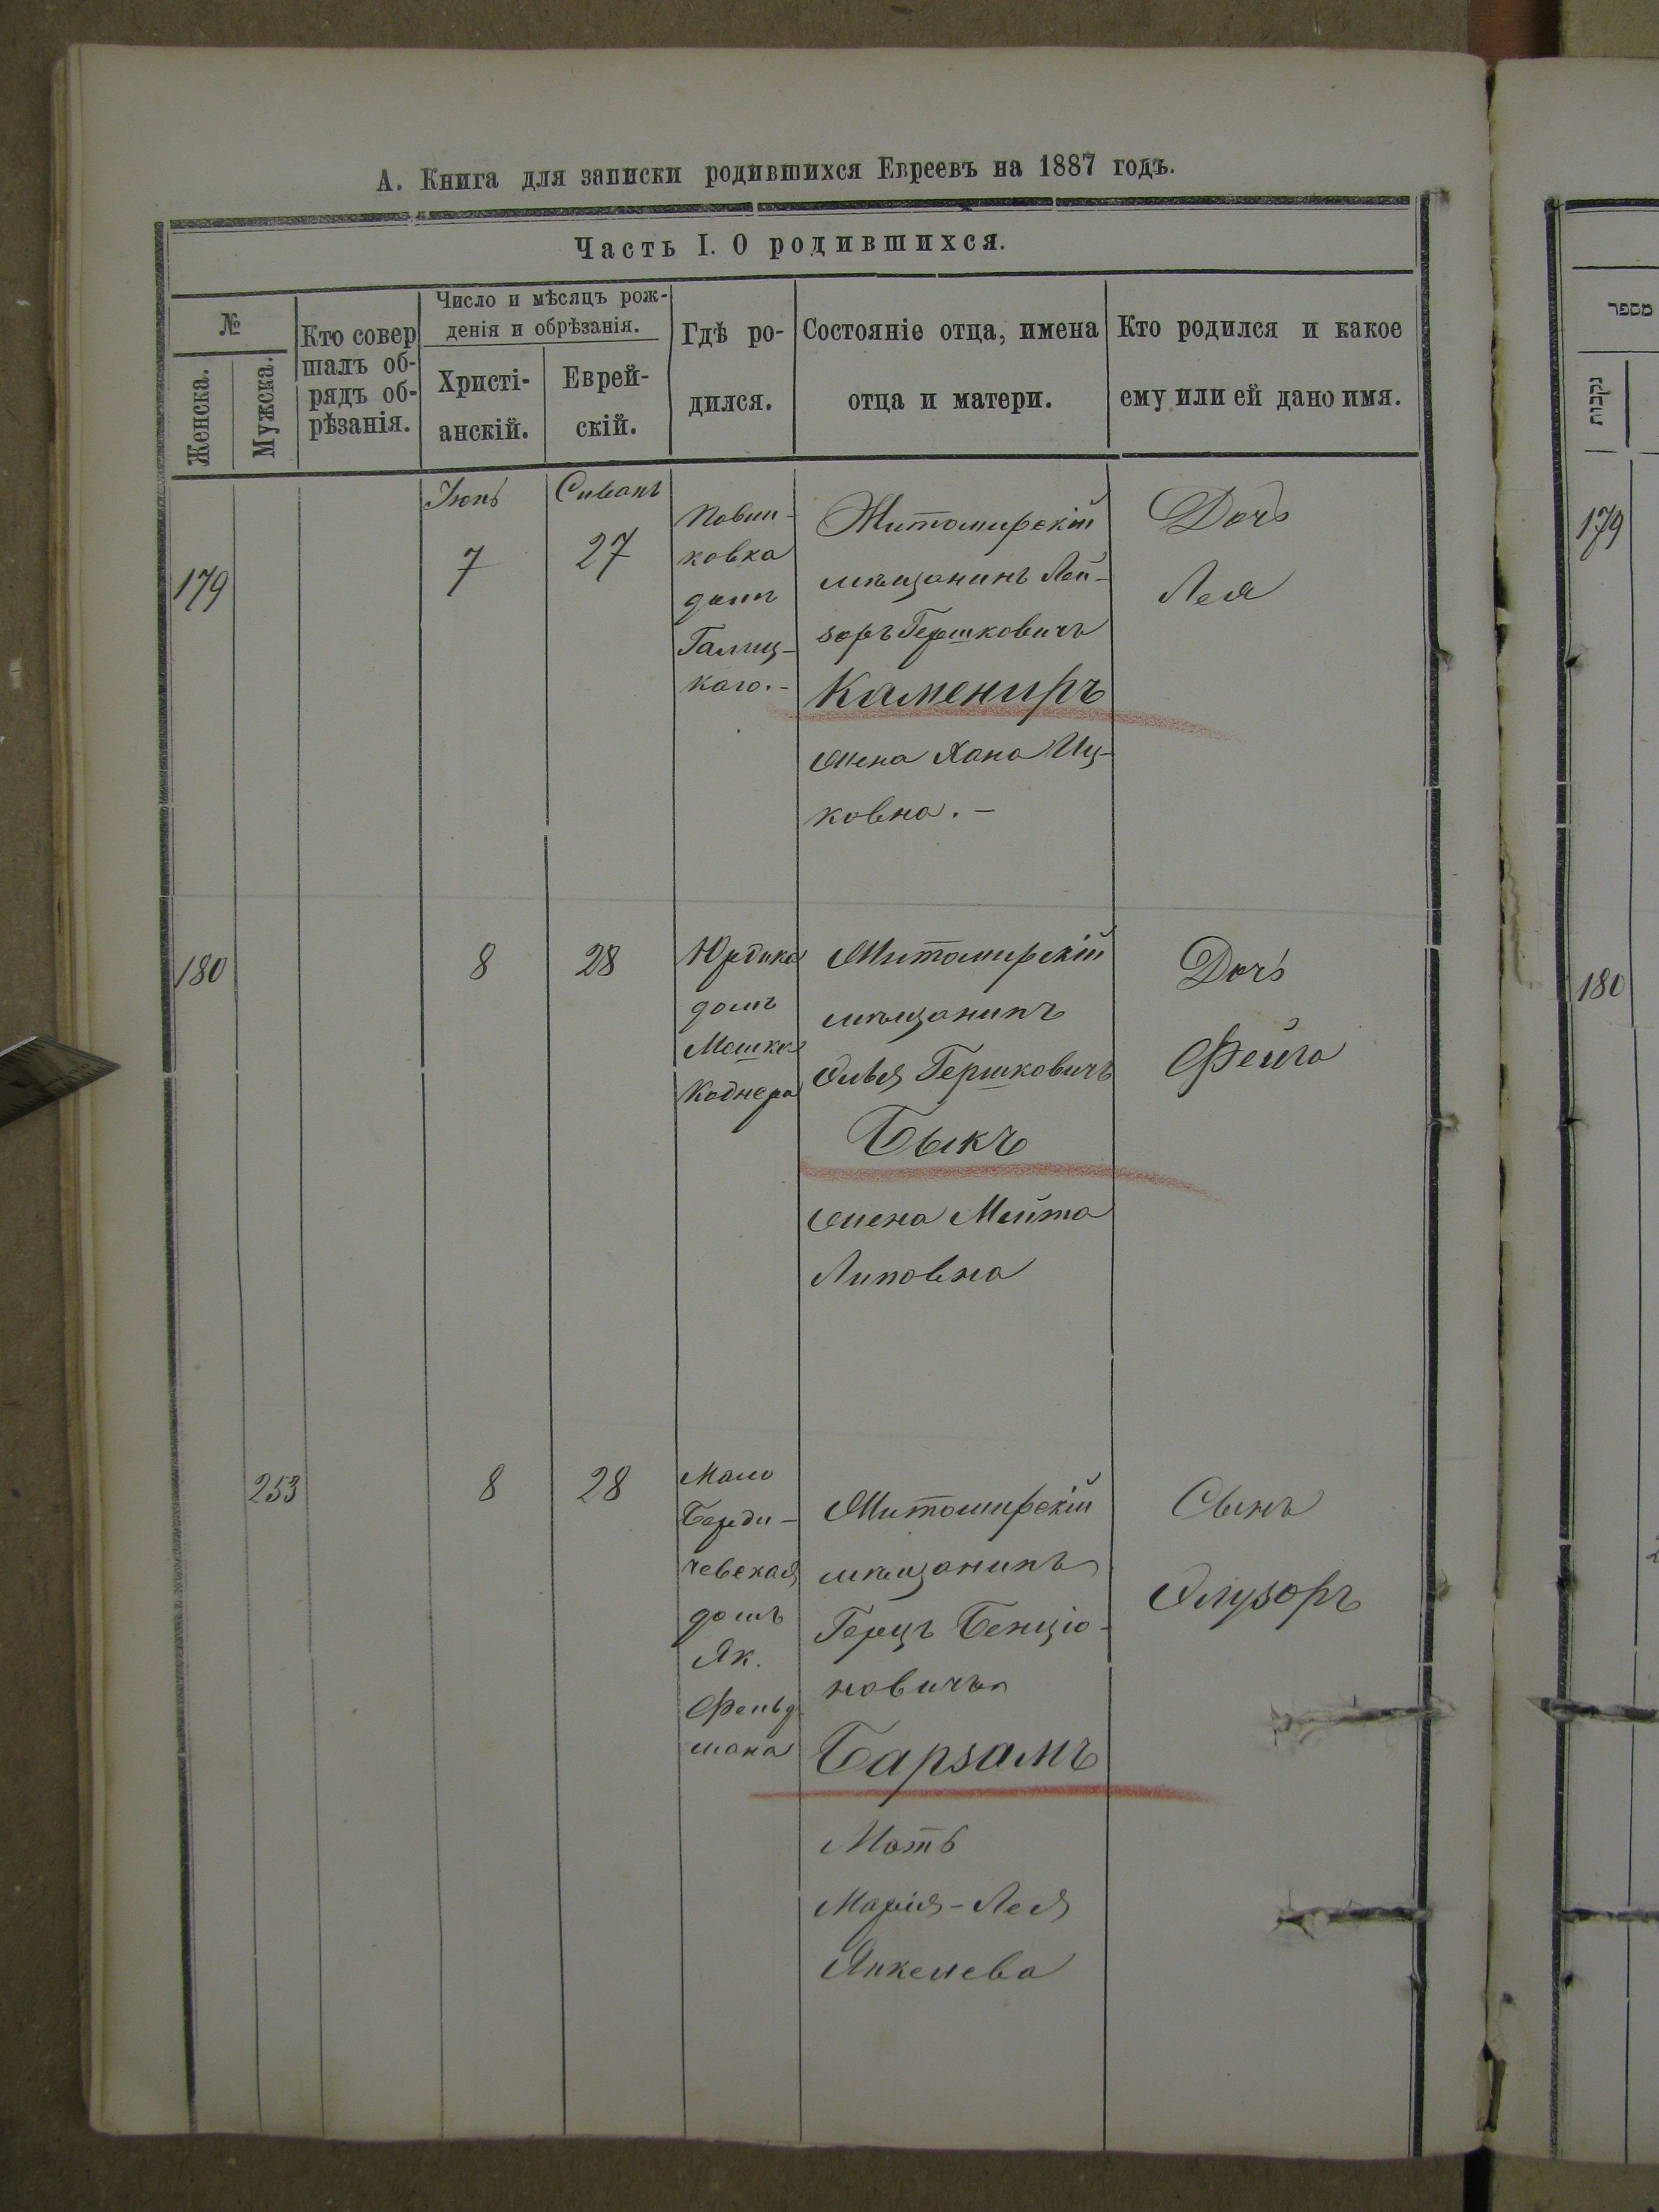 А. Книга для записки родившихся Евреевъ на 1887 годъ.
Часть I. О родившихся.
№
Женска.
Мужска.
Кто совер
шалъ об-
рядъ об-
рѣзанія.
Число и мѣсяцъ рож-
денія и обрѣзанія.
Христі-
анскій.
Еврей-
скій.
Гдѣ ро-
дился.
Состояніе отца, имена
отца и матери.
Кто родился и какое
ему или ей дано имя.
179
Іюнь
7
Сиванъ
27
Павли-
ковка
домъ
Галиц-
каго.-
Житомирскій
мѣщанинъ Лей-
зоръ Гершковичъ
Камениръ
жена Хана Иц-
ковна.-
Дочь
Лея
180
8
28
Юрдика
домъ
Мошка
Коднера
Житомирскій
мѣщанинъ
Элья Гершковичъ
Быкъ
жена Мейта
Липовна
Дочь
Фейга
253
8
28
Мало
Берди-
чевская
домъ
Як.
Фельд-
мана
Житомирскій
мѣщанинъ
Герцъ Бенціо-
новичъ
Барзамъ
Мать
Марія-Лея
Янкелева
Сынъ
Элузоръ
מספר
נקבות
179
180